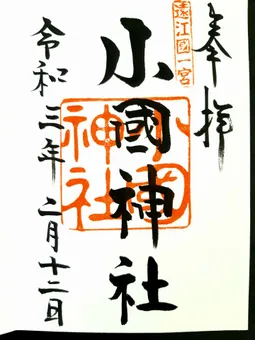 奉拝
遠江國一宮
小國神社
小國神社
令和三年 二月十二日